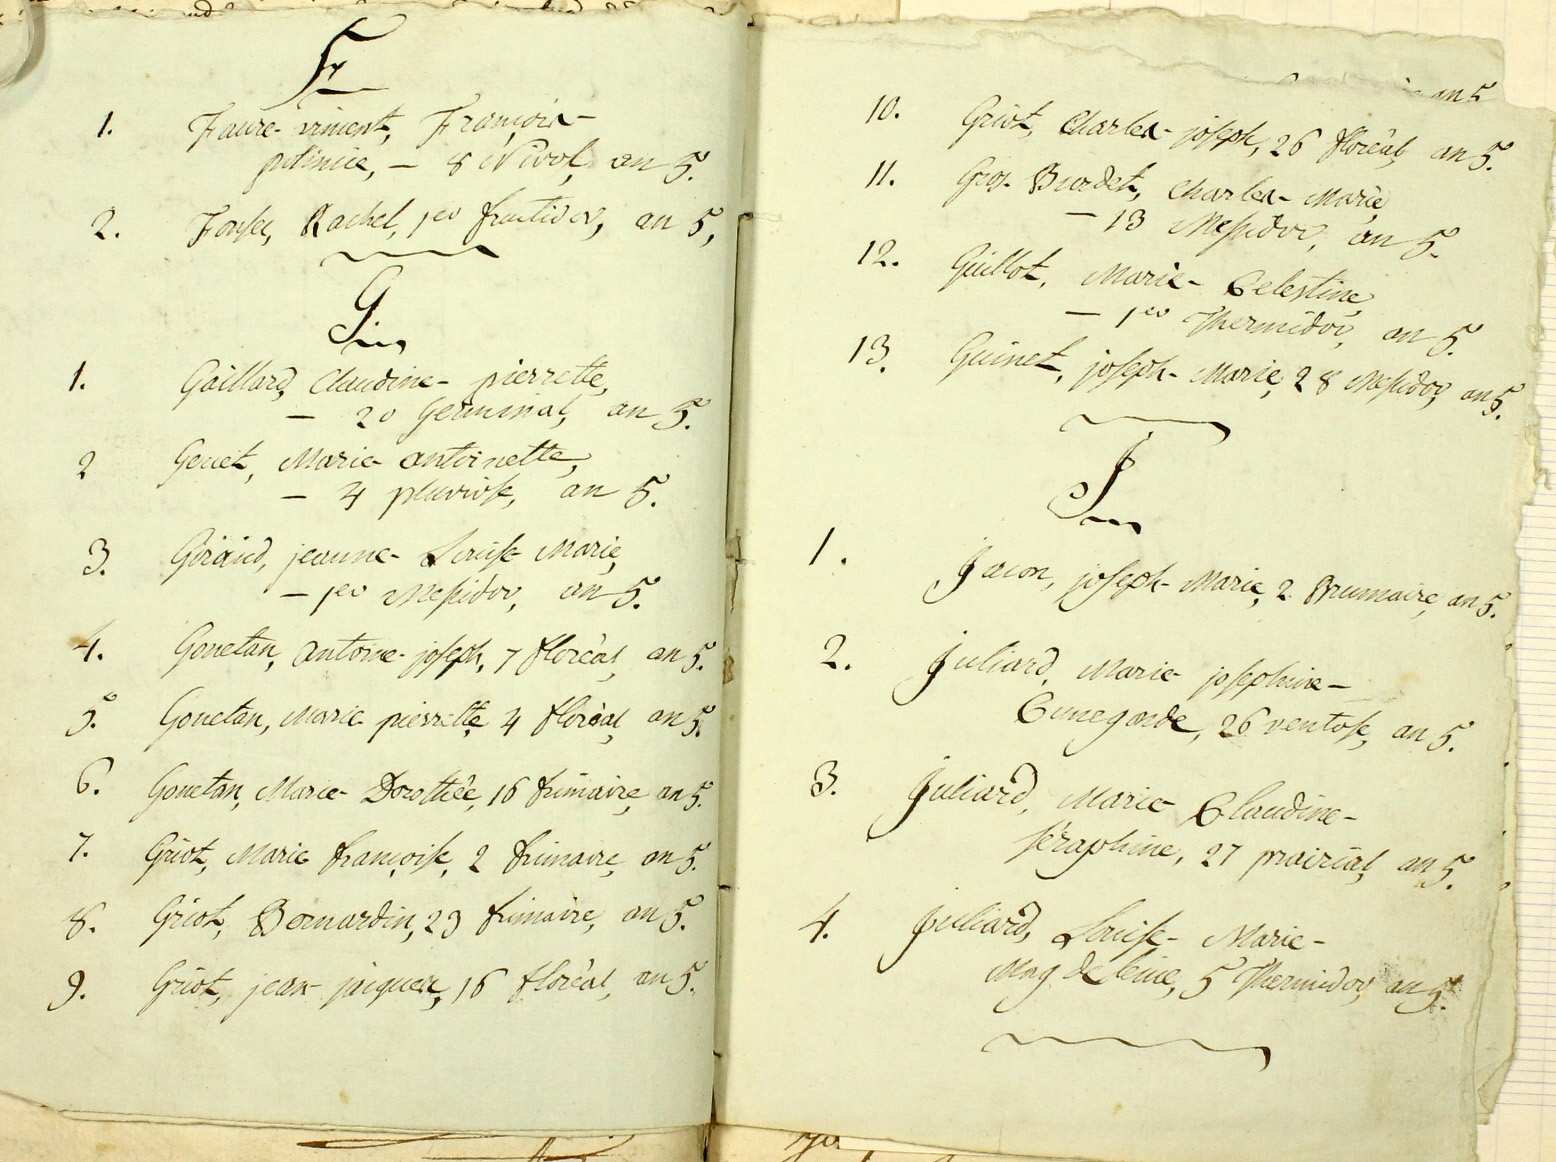 F
1. Faure-vincent, François-
— 8 Nivos, an 5.
2. Rachel, 1er fructidor, an 5,
G.
1. Gaillard, Claudine-pierrette,
— 20 Germinal, an 5.
2 Genet, Marie antoinette,
— 4 pluviose, an 5.
3. Giraud, jeanne-Louise Marie,
— 1er Messidor, an 5.
4. Gonetan, antoine-joseph, 7 floréal, an 5.
5. Gonetan, Marie pierrette, 4 floréal, an 5.
6. Gonetan, Marie-Dorothée, 16 frimaire, an 5.
7. Griot, Marie françoise, 2 frimaire, an 5.
8. Griot, Bernardin, 23 frimaire, an 5.
9. Griot, jean-jacques, 16 floréal, an 5.
an 5
10. Griot, Charles-joseph, 26 floréal, an 5.
11. Gros-Burdet, Charles-Marie,
— 13 Messidor, an 5.
12. Guillot, Marie-Celestine,
— 1er Thermidor, an 5.
13. Guinet, joseph-Marie, 28 Messidor, an 5.
J
1. Jacon, joseph-Marie, 2 Brumaire, an 5.
2. Juliard, Marie josephine-
Cunegonde, 26 ventose, an 5.
3. Juliard, Marie Claudine-
séraphine, 27 prairial, an 5.
4. Juliard, Louise-Marie-
Magdeleine, 5 Thermidor, an 5.